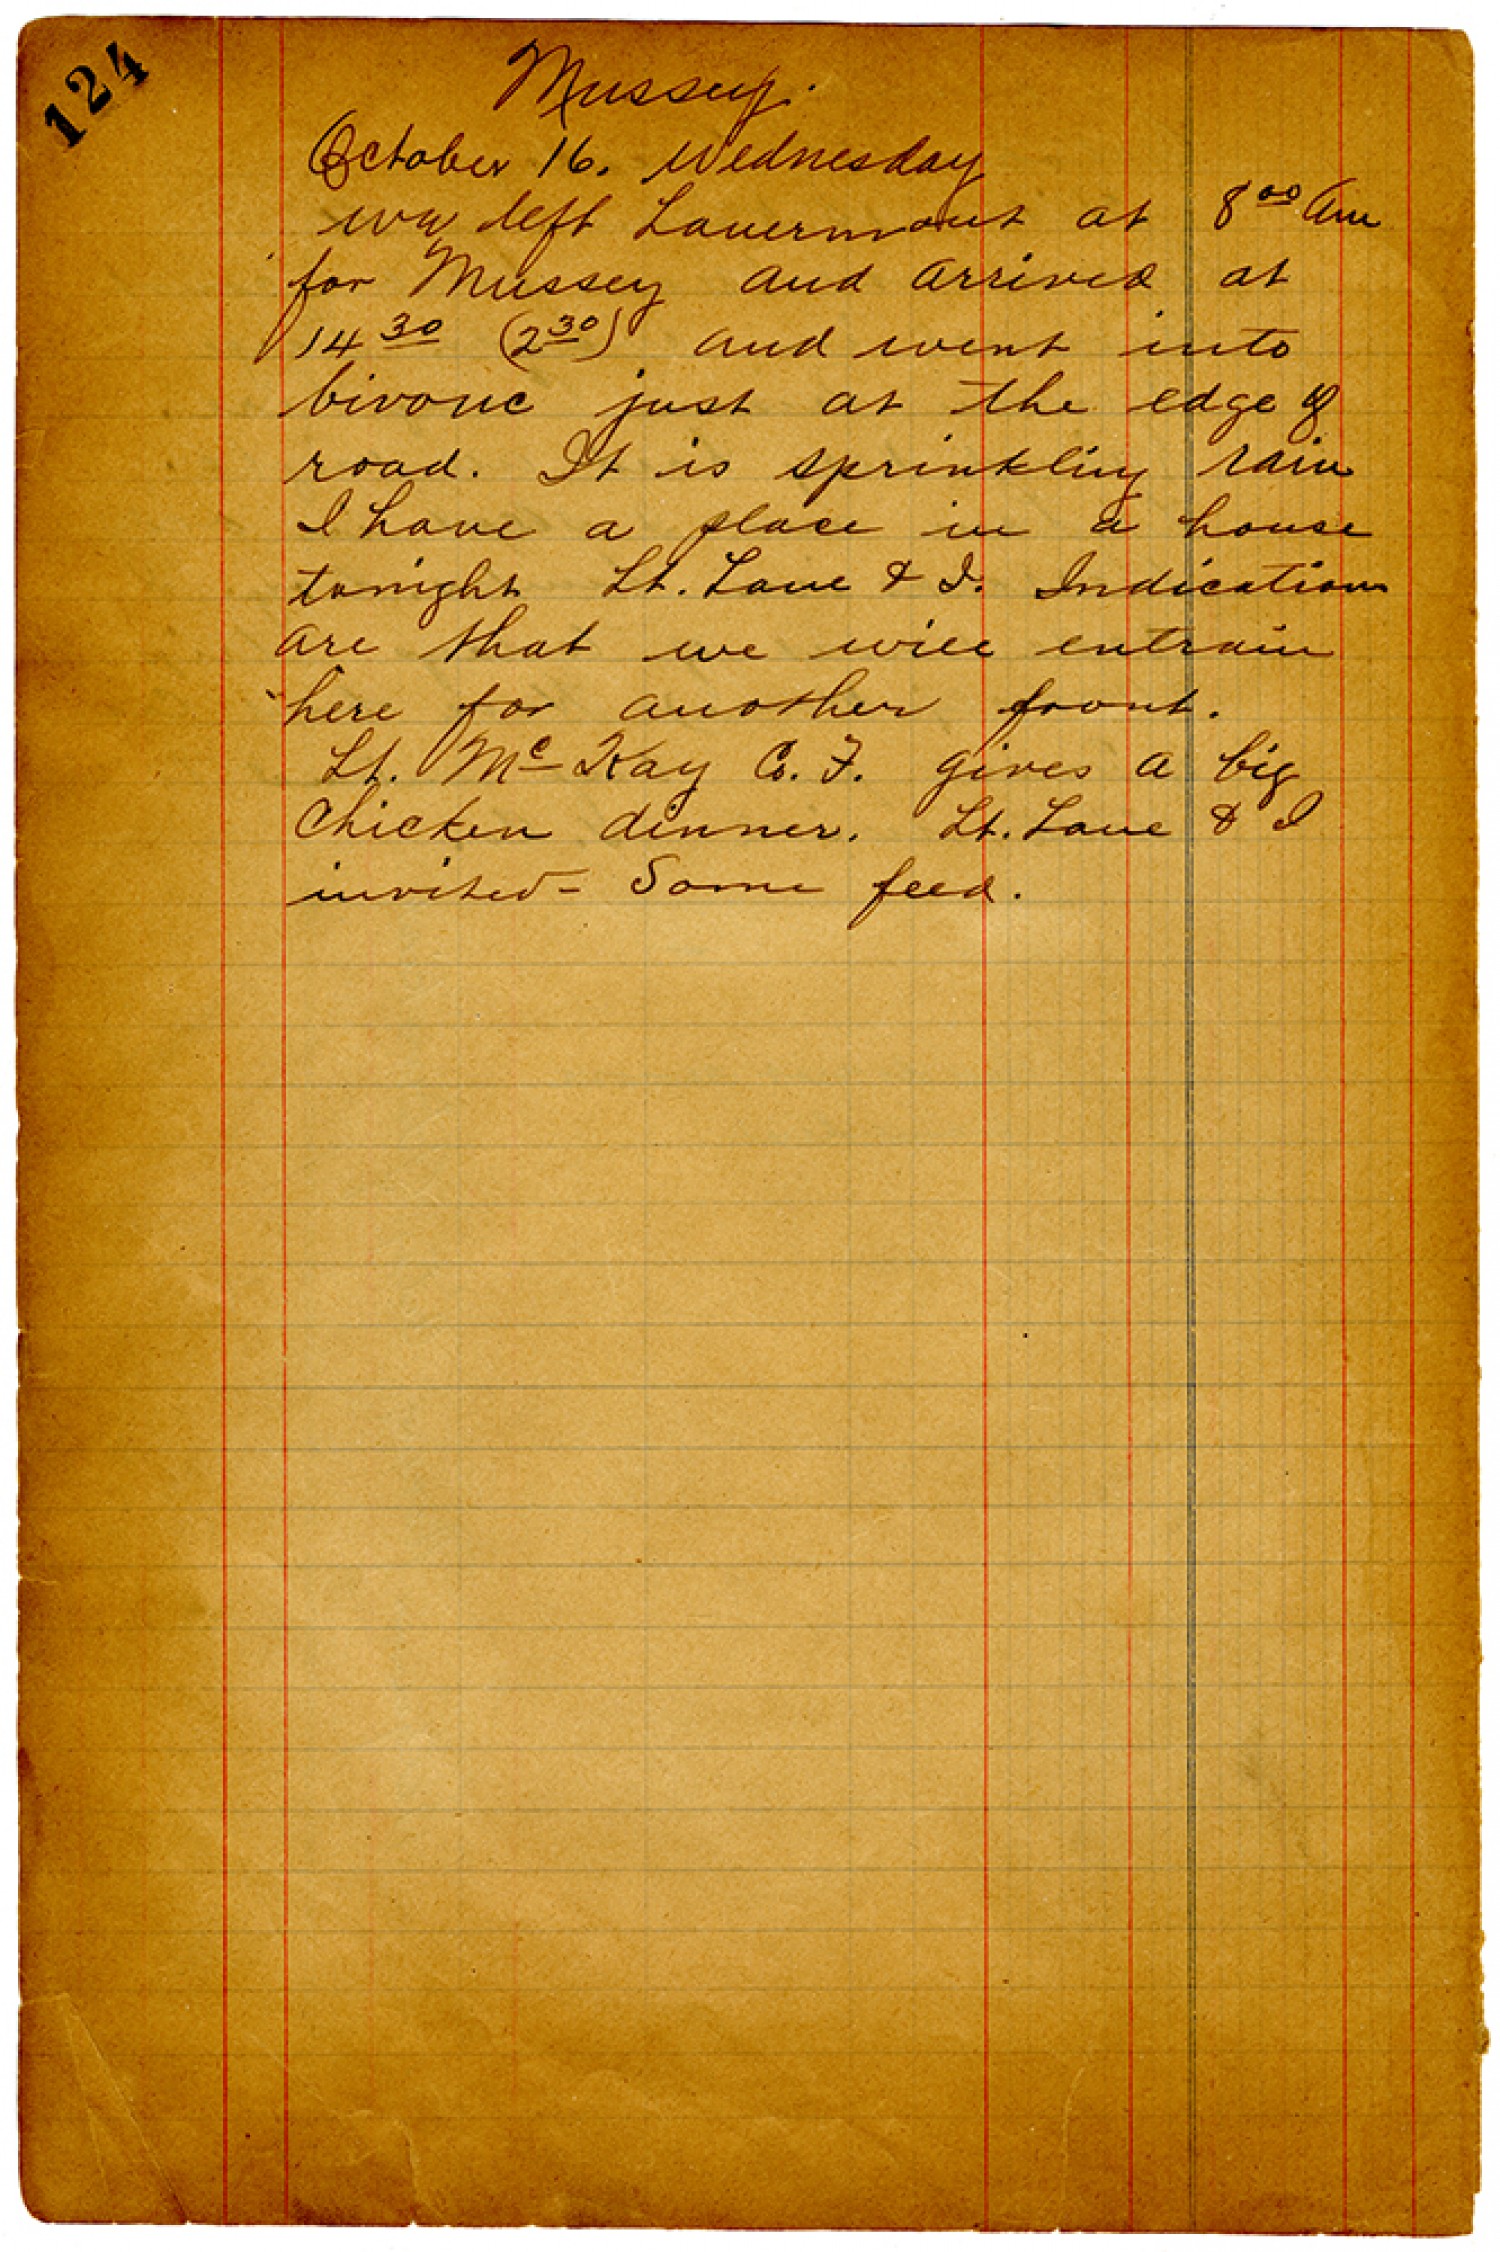 124
Mussey.
October 16. Wednesday
we left Lavermont at 8⁰⁰ Am
for Mussey and arrived at
14³⁰ (2³⁰) and went into
bivouc just at the edge of
road. It is sprinkling rain
I have a place in a house
tonight Lt. Lane & I. Indications
are that we will entrain
here for another front.
Lt. Mc Kay Co. F. gives a big
chicken dinner. Lt. Lane & I
invited - Some feed.